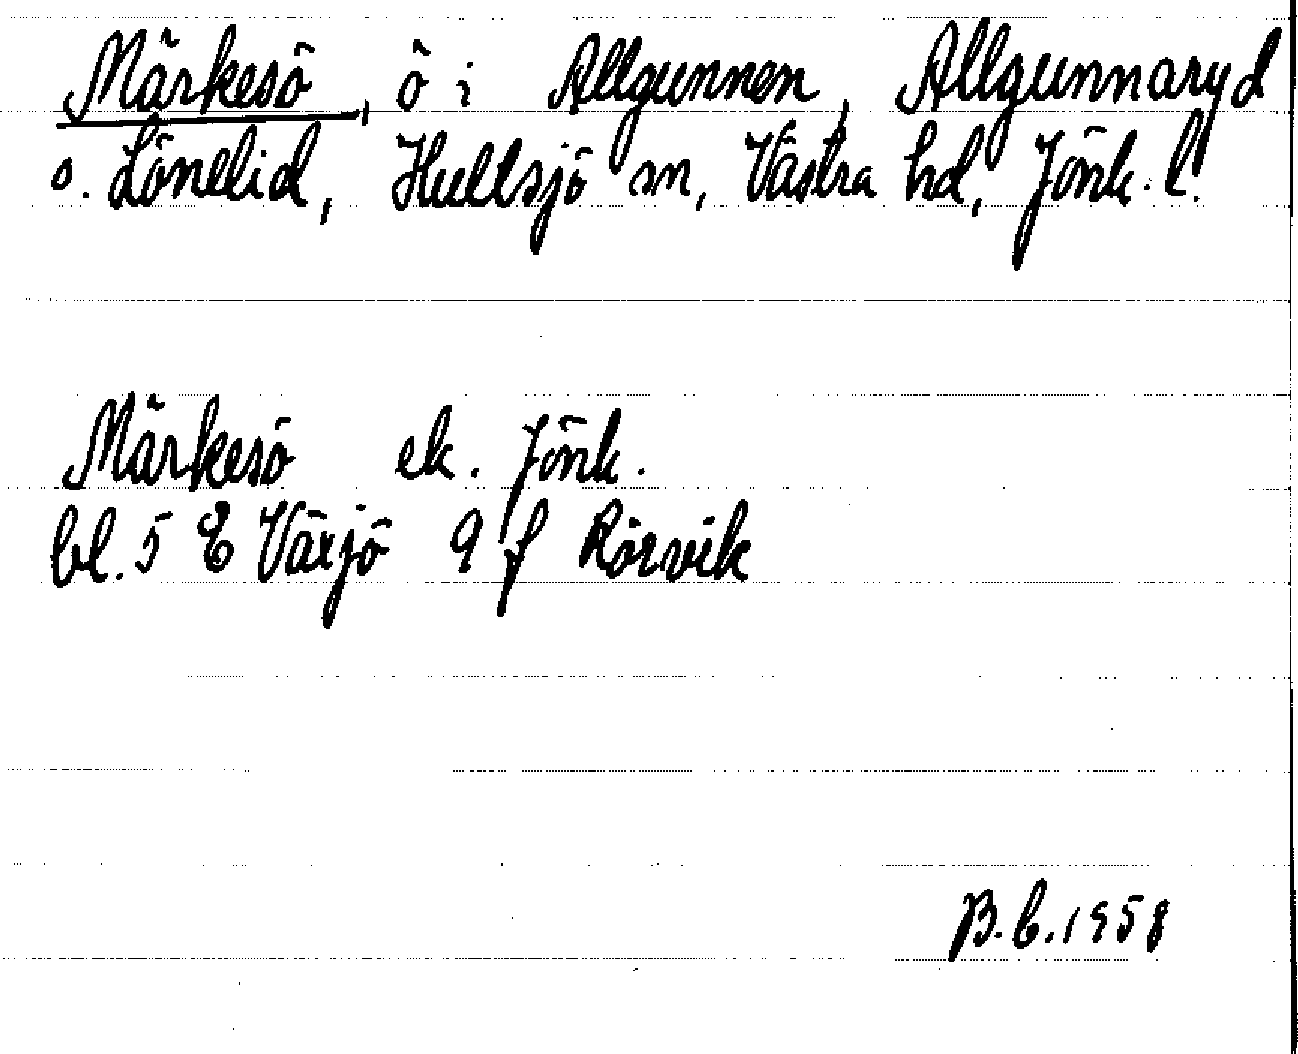 Märkesö, ö i Allgunnen, Allgunnaryd
s. Lönelid, Hultsjö sn, Västra hd, Jönk. l.
Märkesö ek. Jönk.
bl. 5 E Växjö 9 f Rörvik
B.C. 1958